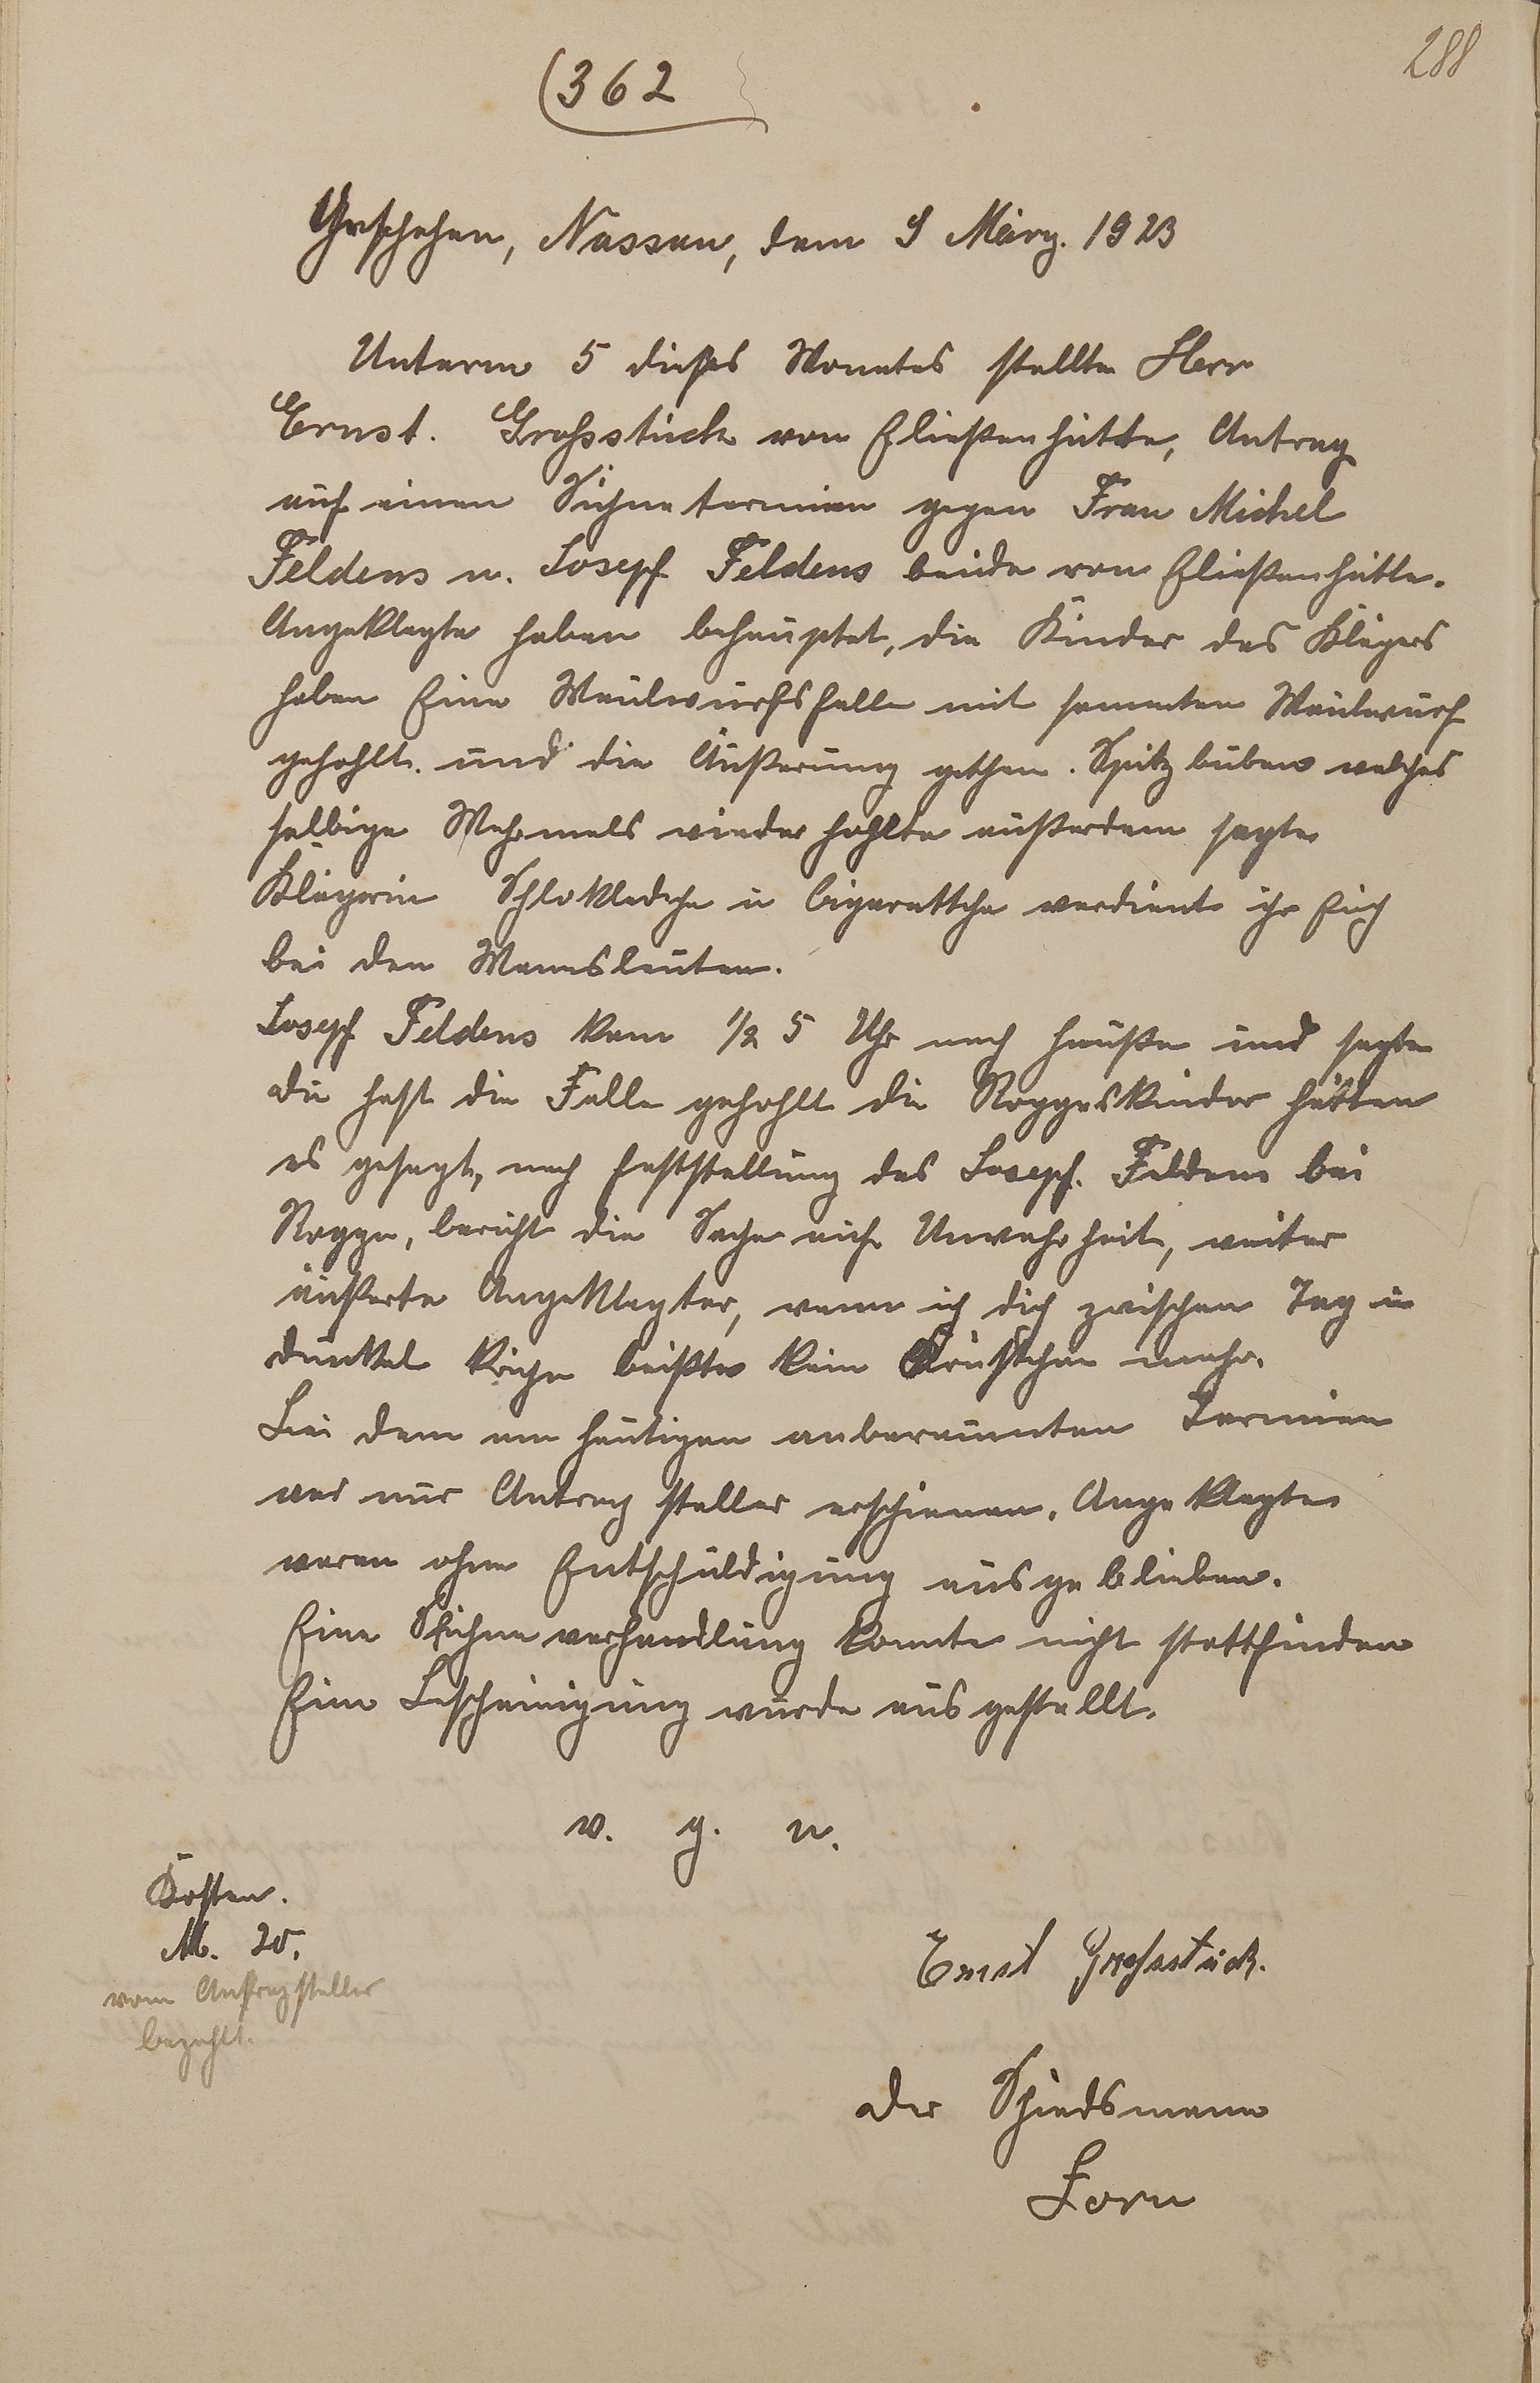 288
(362
Geschehen, Nassau, dem 9 März. 1923
Unterm 5 dieses Monates stellte Herr
Ernst. Grossstück von Elisenhütte, Antrag
auf einen Sühnetermien gegen Frau Michel
Feldens u. Josepf Feldens beide von Elisenhütte.
Angeklagte haben behauptet, die Kinder des Klägers
haben Eine Maulwurfsfalle mit sammten Maulwurf
gehohlt. und die Äußerung gethan. Spitzbuben welches
selbige Mehrmals wieder hohlte außerdem sagte
Klägerin u Cigarettche verdient ihr Euch
bei den Mannsleuten.
Josepf Feldens kam 1/2 5 Uhr nach hauße und sagte
du hast die Falle gehohlt die Roggeskinder hätten
es gesagt, nach Feststellung des Josepf. Feldens bei
Rogge, beruht die Sache auf Unwahrheit, weiter
äußerte Angeklagter, wenn ich dich zwischen Tag u
dunkel krige beißte kein Krüstchen mehr.
Bei dem am heutigen anberaumten Termien
war nur Antragsteller erschienen. Angeklagte
waren ohne Entschuldigung ausgeblieben.
Eine Sühneverhandlung konnte nicht stattfinden
Eine Bescheinigung wurde ausgestellt.
v. g. u.
Kosten.
M. 20.
vom Antragsteller
bezahlt.
Ernst Grossstück.
der Schiedsmann
Zorn